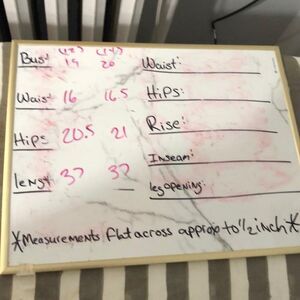 (12) (14)
Bust 19 20 Waist:
Waist 16 16.5 Hips:
Hips 20.5 21 Rise:
Inseam:
length 37 37
leg opening:
*Measurements flat across approx to 1/2 inch*